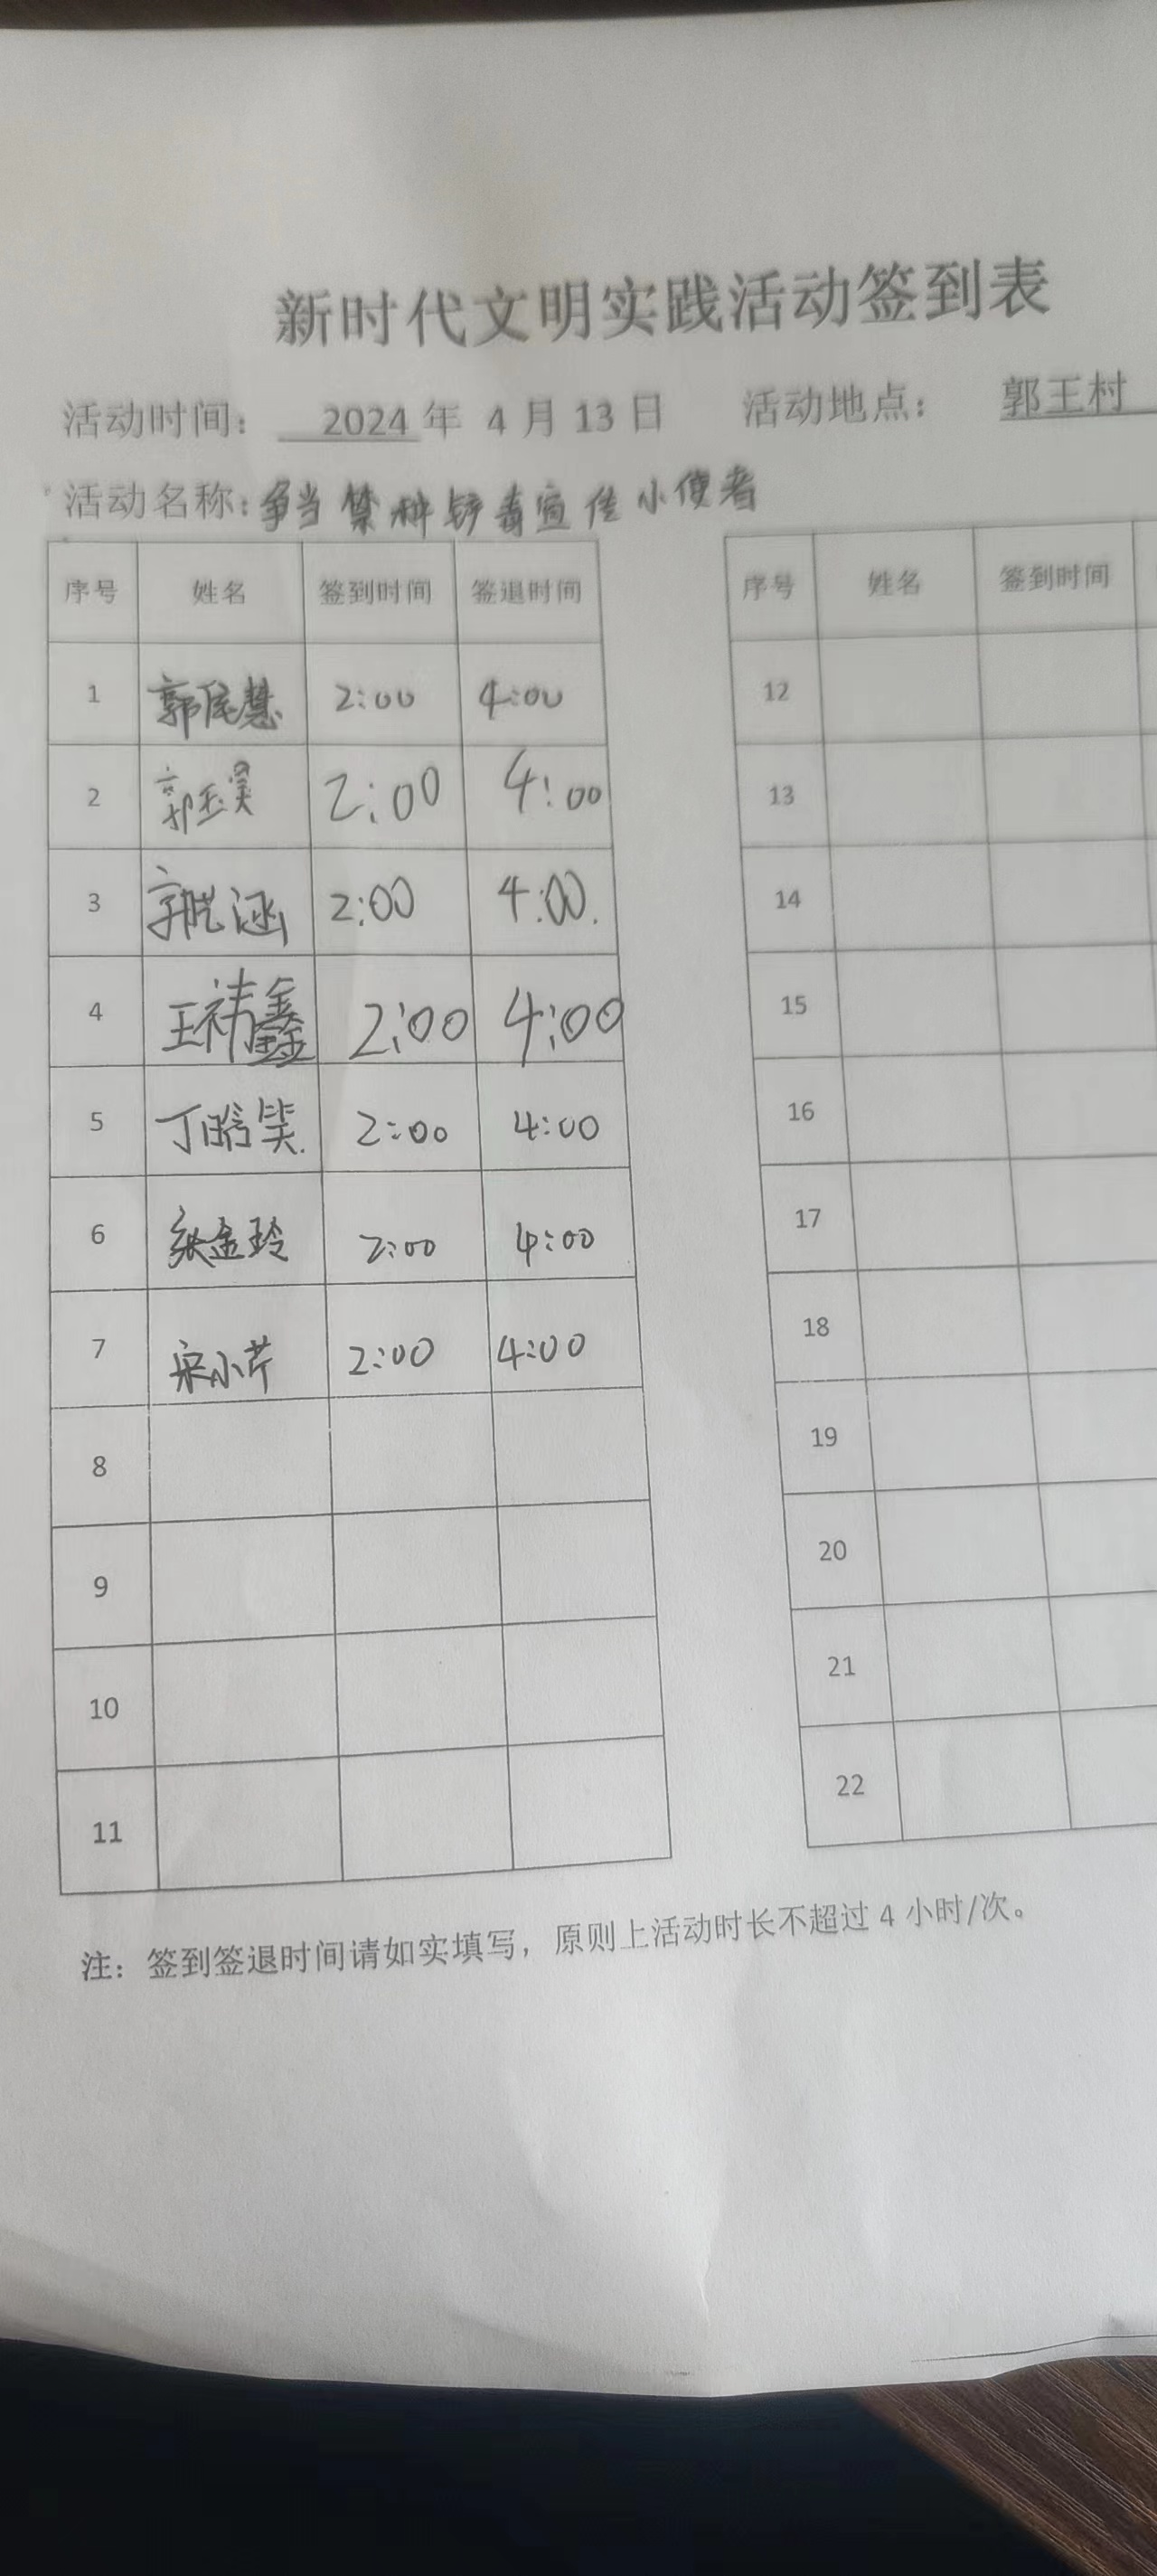 新时代文明实践活动签到表
活动时间： 2024 年 4 月 13 日 活动地点： 郭王村
活动名称: 争当禁种铲毒宣传小使者
序号 姓名 签到时间 签退时间 序号 姓名 签到时间
1 2:00 4:00 12
2 2:00 4:00 13
3 2:00 4:00. 14
4 王祎鑫 2:00 4:00 15
5 2:00 4:00 16
6 张金玲 2:00 4:00 17
7 宋小芹 2:00 4:00 18
8 19
9 20
10 21
11 22
注：签到签退时间请如实填写，原则上活动时长不超过 4 小时/次。